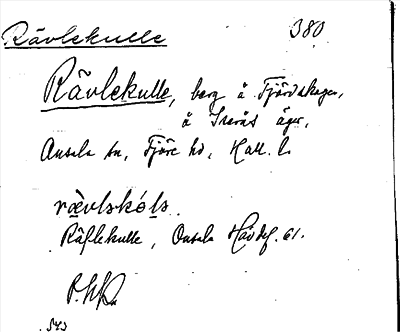 Rävlekulle 380
Rävlekulle, berg å Fjärdskagen,
å Iserås ägor,
Onsala sn, Fjäre hd, Hall. l.
rævlskóls.
Räflekulle, Onsala Häv df. 61.
543